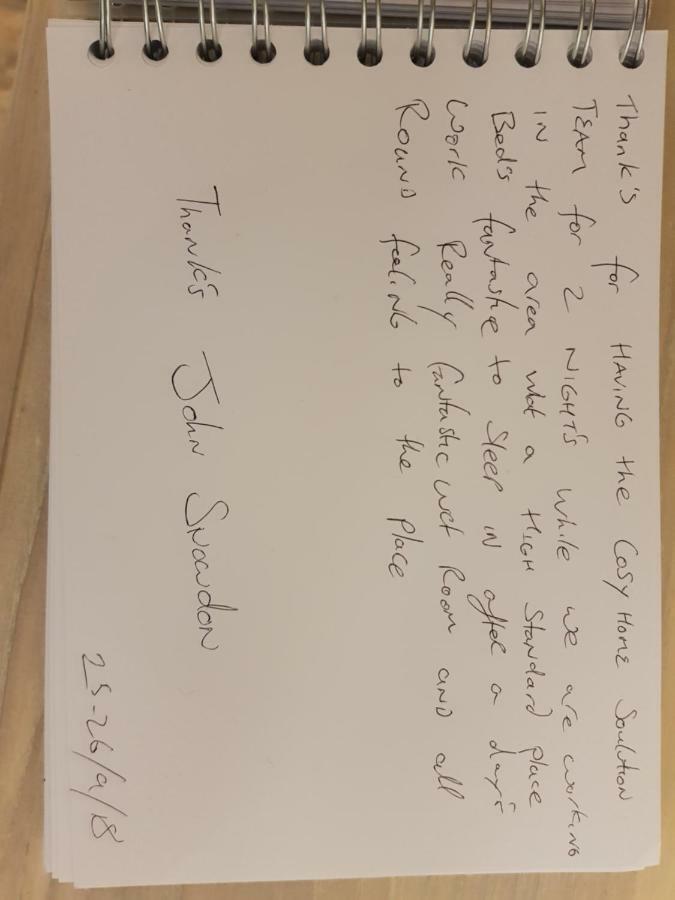 Thank's for HAVING the Cosy Home Soulution
TEAM for 2 NIGHT'S while we are working
in the area what a HIGH Standard place
Bed's fantastic to Sleep IN after a day's
work Really fantastic wet Room and all
Round feeling to the place
Thank's John Snowdon
25-26/9/18